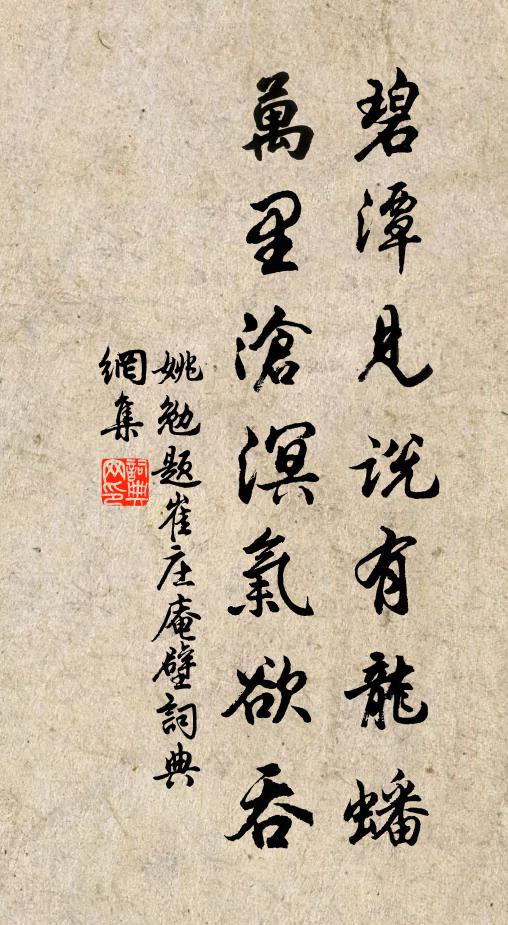 碧潭見説有龍蟠
萬里滄溟氣欲吞
姚勉題崔庄庵壁詞典
網集
詞典网印